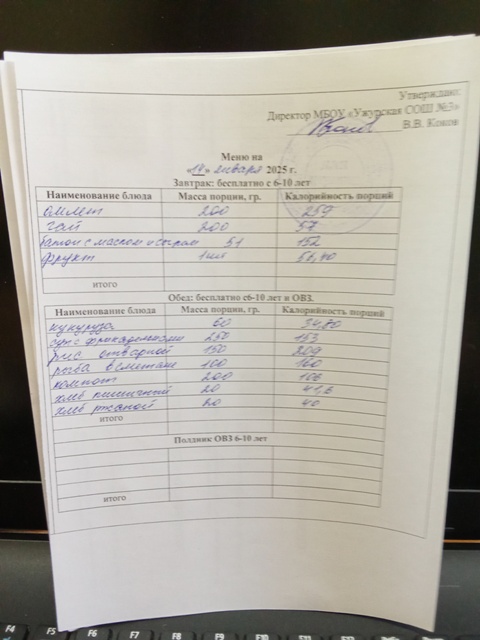 Утверждаю:
Директор МБОУ «Ужурская СОШ №3»
В.В. Коков
Меню на
«14» января 2025 г.
Завтрак: бесплатно с 6-10 лет
Наименование блюда Масса порции, гр. Калорийность порций
омлет 200 259
чай 200 57
батон с маслом и сыром 51 152
фрукт 1шт 56,40
итого
Обед: бесплатно с6-10 лет и ОВЗ.
Наименование блюда Масса порции, гр. Калорийность порций
кукуруза 60 34.80
суп с фрикадельками 250 153
рис отварной 150 209
рыба в сметане 100 160
компот 200 106
хлеб пшеничный 20 41,6
хлеб ржаной 20 40
итого
Полдник ОВЗ 6-10 лет
итого
F4 F5 F6 F7 F8 F9